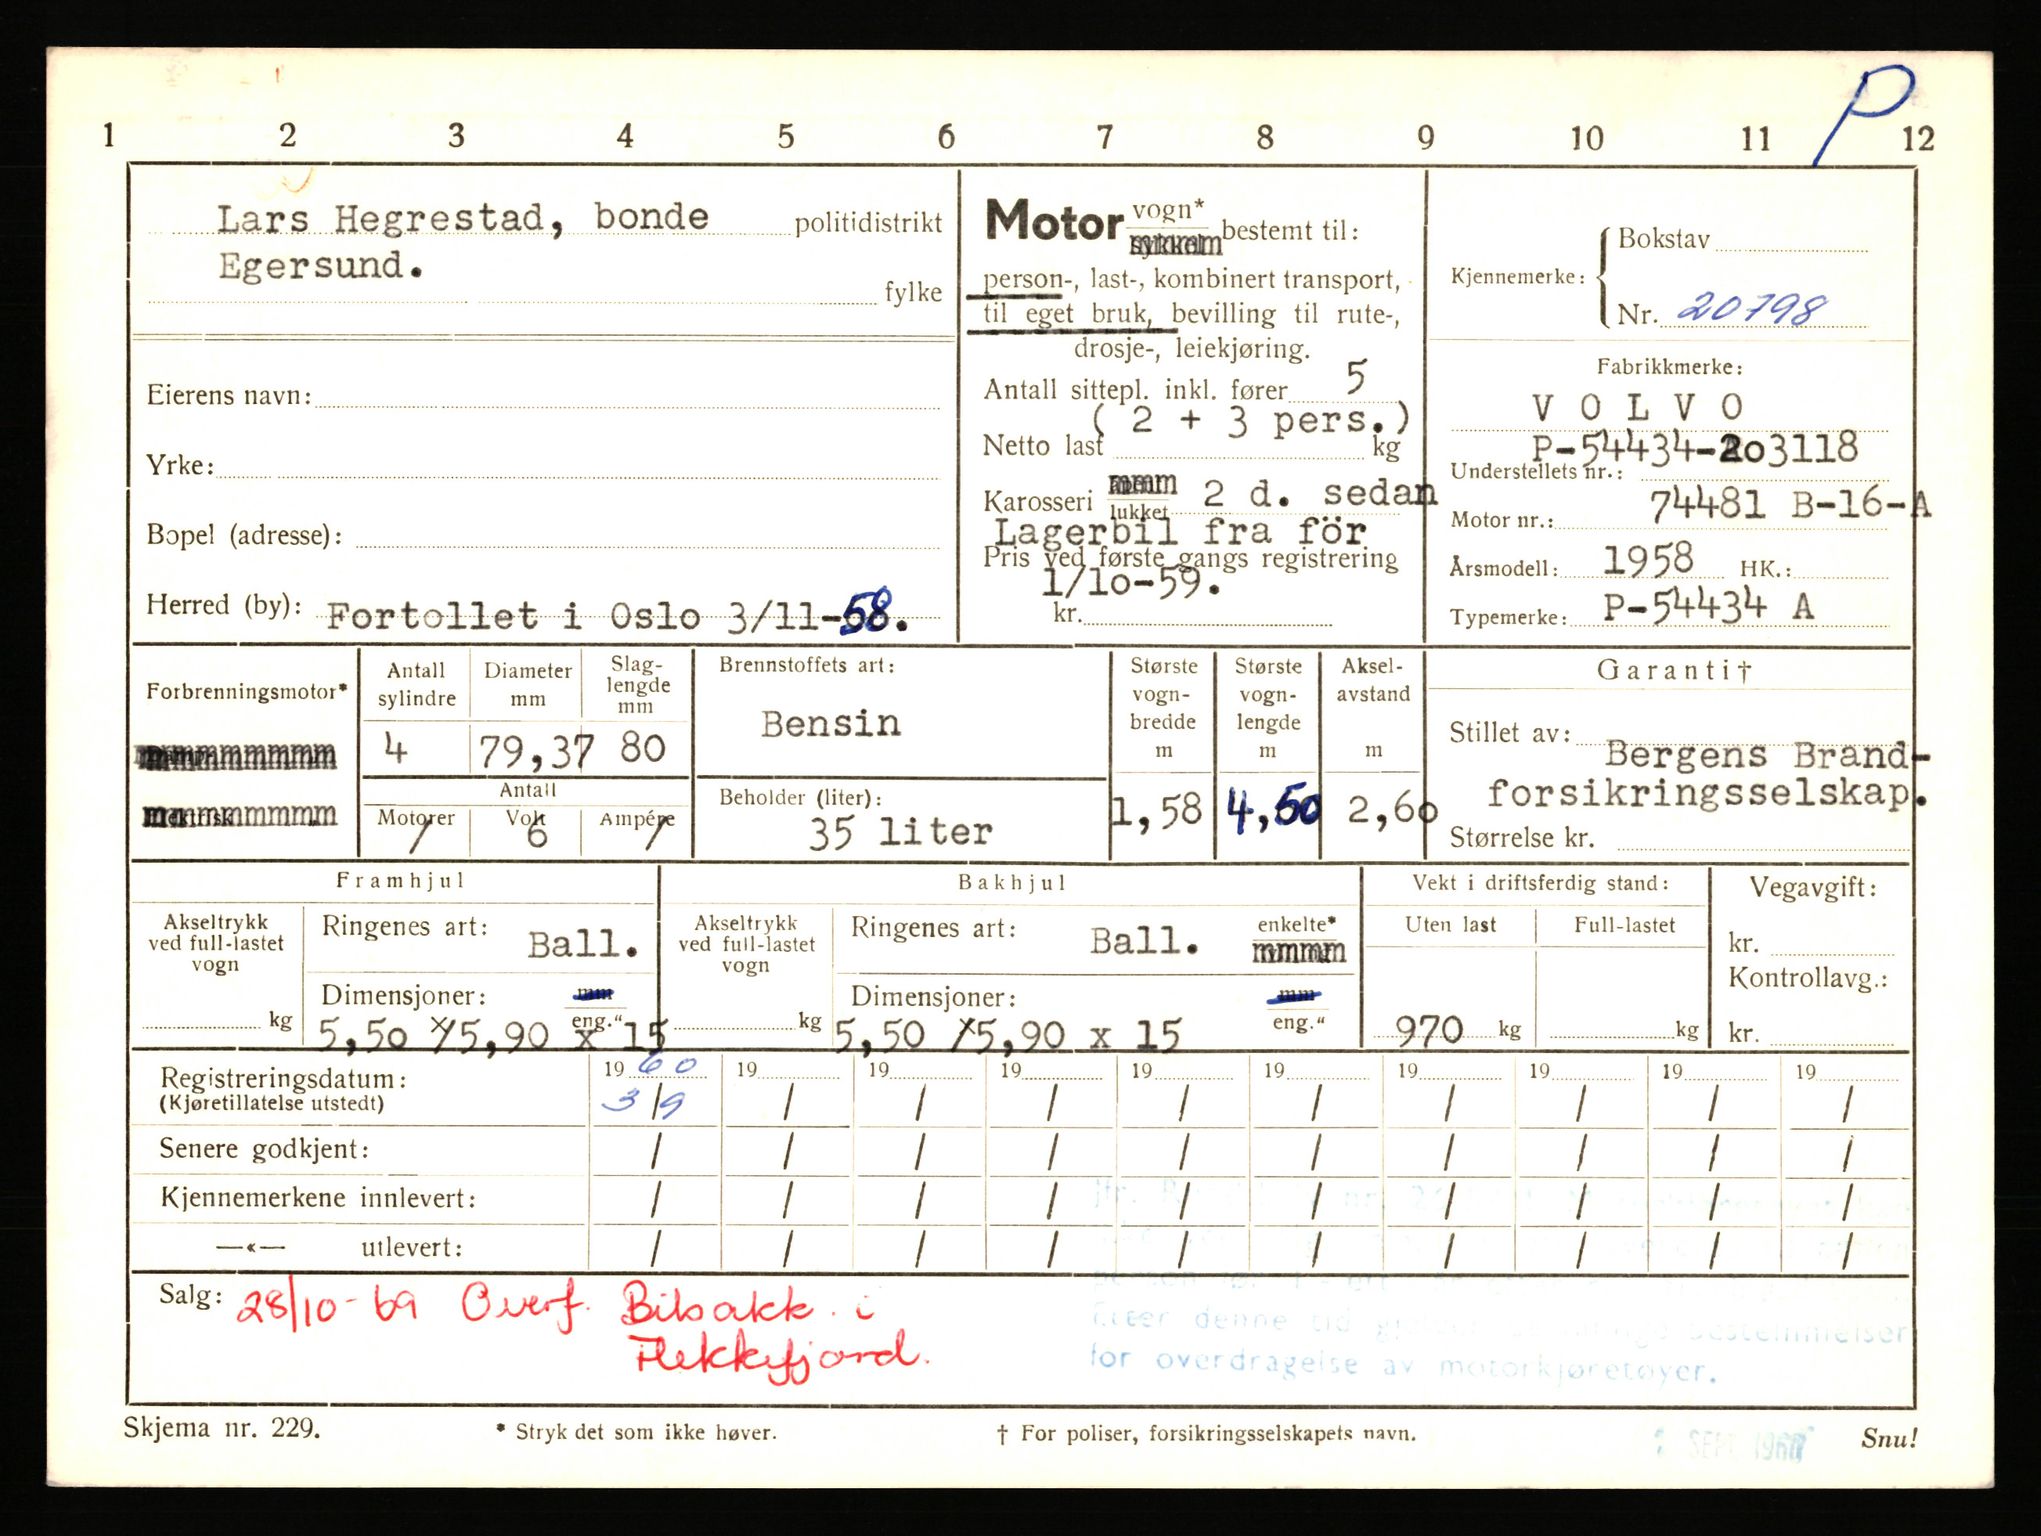 P
1 2 3 4 5 6 7 8 9 10 11 12
Lars Hegrestad, bonde politidistrikt
Egersund.
fylke
Eierens navn:
Yrke:
Bopel (adresse):
Herred (by): Fortollet i Oslo 3/11-58.
Motor vogn* bestemt til:
person-, last-, kombinert transport,
til eget bruk, bevilling til rute-,
drosje-, leiekjøring.
Antall sittepl. inkl. fører 5
( 2 + 3 pers.)
Netto last kg
Karosseri lukket 2 d. sedan
Lagerbil fra för
Pris ved første gangs registrering
1/10-59.
kr.
Kjennemerke: Bokstav
Nr. 20798
Fabrikkmerke:
V O L V O
P-54434-203118
Understellets nr.:
Motor nr.: 74481 B-16-A
Årsmodell: 1958 HK.:
Typemerke: P-54434 A
Forbrenningsmotor*
Antall sylindre 4
Diameter mm 79,37
Slag-lengde mm 80
Antall
Motorer / Volt 6 Ampére /
Brennstoffets art:
Bensin
Beholder (liter):
35 liter
Største vogn-bredde m 1,58
Største vogn-lengde m 4,50
Aksel-avstand m 2,60
Garanti†
Stillet av: Bergens Brand-
forsikringsselskap.
Størrelse kr.
Framhjul
Akseltrykk ved full-lastet vogn kg
Ringenes art: Ball.
Dimensjoner: mm eng."
5,50 x/5,90 x 15
Bakhjul
Akseltrykk ved full-lastet vogn kg
Ringenes art: Ball. enkelte*
Dimensjoner: mm eng."
5,50 x/5,90 x 15
Vekt i driftsferdig stand:
Uten last Full-lastet
970 kg kg
Vegavgift:
kr.
Kontrollavg.:
kr.
Registreringsdatum: 1960 19 19 19 19 19 19 19 19 19
(Kjøretillatelse utstedt) 3/9 / / / / / / / / /
Senere godkjent: / / / / / / / / / /
Kjennemerkene innlevert: / / / / / / / / / /
—«— utlevert: / / / / / / / / / /
Salg: 28/10-69 Overf. Bilsakk. i
Flekkefjord.
Etter denne tid bestemmelser
for overdragelse av motorkjøretøyer.
Skjema nr. 229.
* Stryk det som ikke høver.
† For poliser, forsikringsselskapets navn.
SEPT. 1960
Snu!